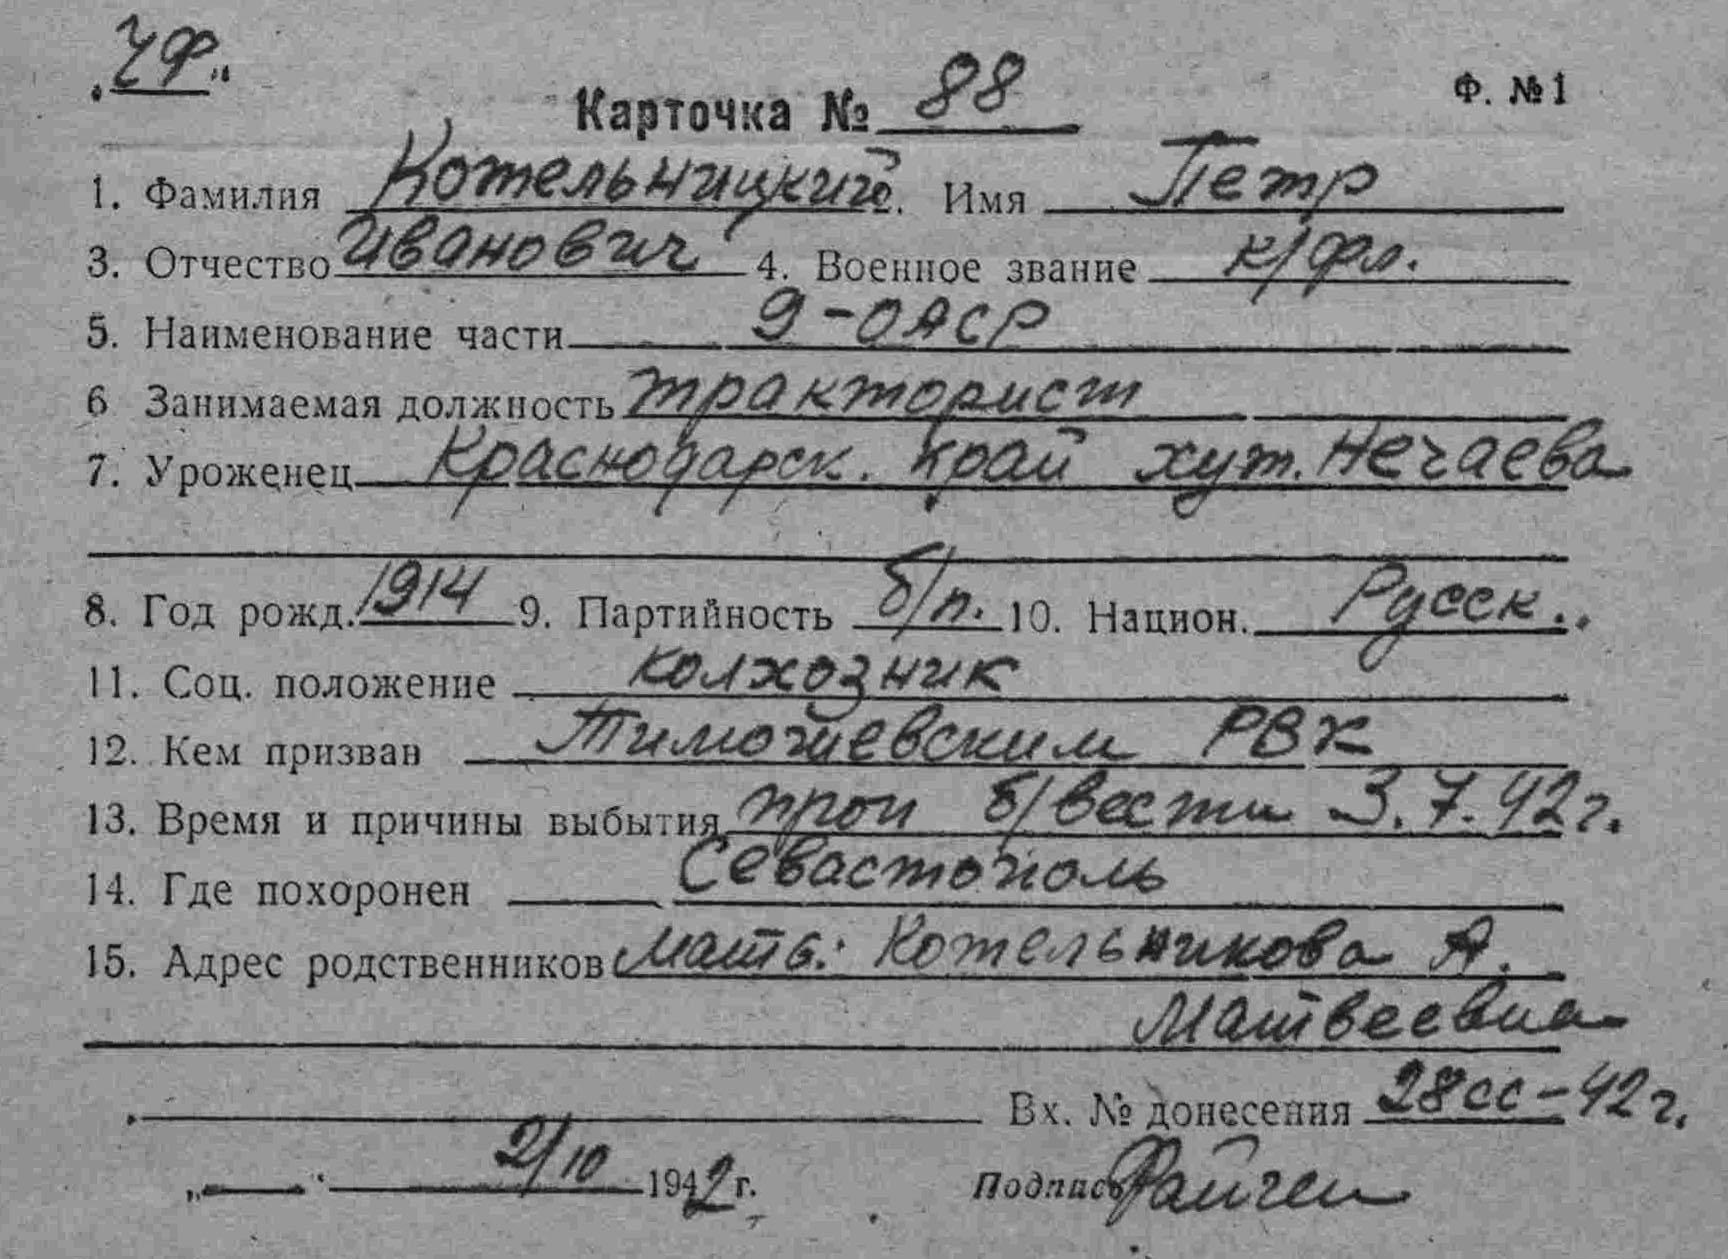 „ЧФ„
Карточка № 88 Ф. №1
1. Фамилия Котельницкий. Имя Петр
3. Отчество Иванович 4. Военное звание к/фл.
5. Наименование части 9-ОАСР
6 Занимаемая должность тракторист
7. Уроженец Краснодарск. край хут. Нечаева
8. Год рожд. 1914 9. Партийность б/п. 10. Национ. Русск..
11. Соц. положение колхозник
12. Кем призван Тимошевским РВК
13. Время и причины выбытия проп б/вести 3.7.42г.
14. Где похоронен Севастополь
15. Адрес родственников Мать: Котельникова А.
Матвеевна
Вх. № донесения 28сс-42г.
2/10 1942г. Подпись